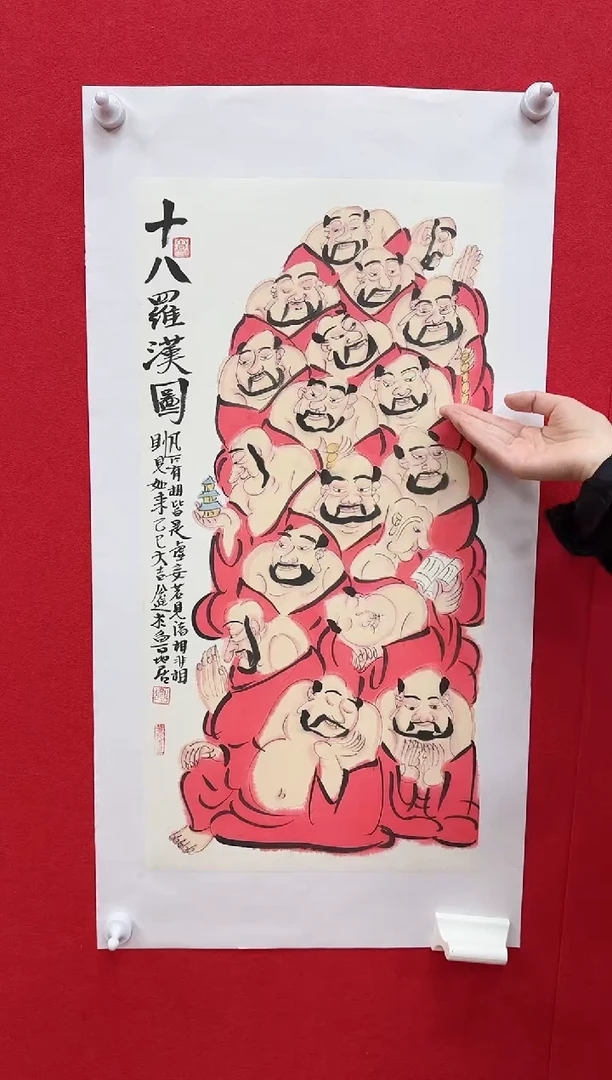 十八羅漢圖
凡所有相皆是虛妄若見諸相非相
則見如來乙巳大吉